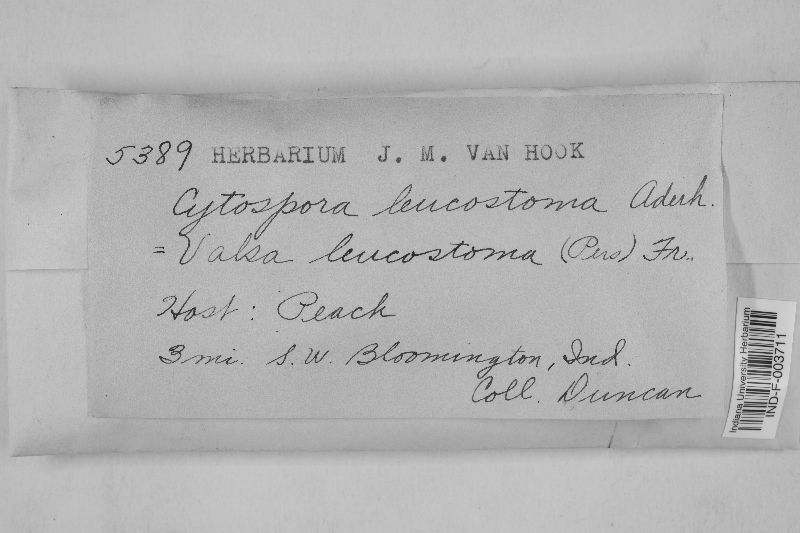 5389 HERBARIUM J. M. VAN HOOK
Cytospora leucostoma Aderh.
= Valsa leucostoma (Pers) Fr..
Host: Peach
3 mi. S.W. Bloomington, Ind.
Coll. Duncan
Indiana University Herbarium
IND-F-003711